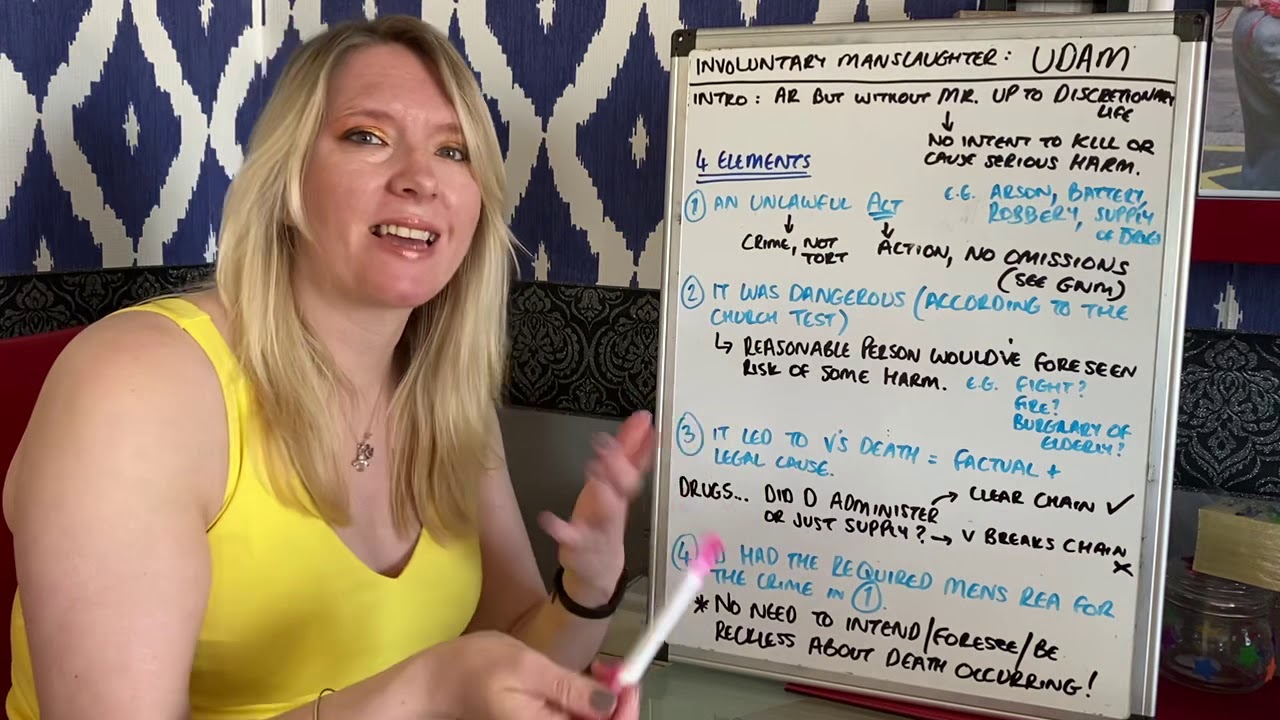 INVOLUNTARY MANSLAUGHTER: UDAM
INTRO: AR BUT WITHOUT MR. UP TO DISCRETIONARY
LIFE
↓
NO INTENT TO KILL OR
CAUSE SERIOUS HARM.
4 ELEMENTS
① AN UNLAWFUL ACT
E.G. ARSON, BATTERY,
ROBBERY, SUPPLY
OF DRUGS
↓ ↓
CRIME, NOT
TORT
ACTION, NO OMISSIONS
(SEE GNM)
② IT WAS DANGEROUS (ACCORDING TO THE
CHURCH TEST)
↳ REASONABLE PERSON WOULD'VE FORESEEN
RISK OF SOME HARM. E.G. FIGHT?
FIRE?
BURGLARY OF
ELDERLY?
③ IT LED TO V'S DEATH = FACTUAL +
LEGAL CAUSE.
DRUGS... DID D ADMINISTER → CLEAR CHAIN ✓
OR JUST SUPPLY? → V BREAKS CHAIN
×
④ D HAD THE REQUIRED MENS REA FOR
THE CRIME IN ①.
* NO NEED TO INTEND/FORESEE/BE
RECKLESS ABOUT DEATH OCCURRING!